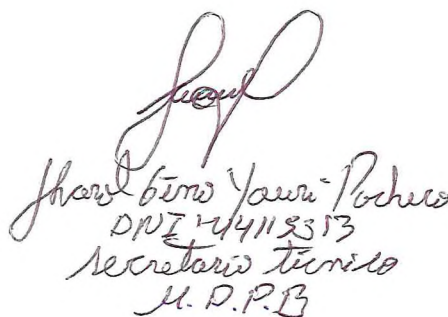 Jharol Geno Yauri Pacheco
DNI 44119353
secretario técnico
M.D.P.B